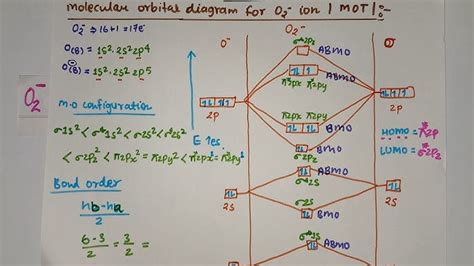 molecular orbital diagram for O₂⁻ ion | MOT |:-
O₂⁻ ⇒ 16+1 = 17e⁻
O(8) = 1s², 2s² 2p4
O⁻(8) = 1s², 2s² 2p5
O₂⁻
m.o configuration
σ1s² < σ*1s² < σ2s² < σ*2s²
< σ2pz² < π2px² = π2py² < π*2px² = π*2py¹
Bond order
nb-na
2
6-3 = 3 =
2 2
E ↑es
O⁻ O₂⁻ O
σ*2pz ABMO
⇅ ⇅ 1 ABMO
π*2px π*2py
⇅ 1 1
2p
2p
π2px π2py
⇅ ⇅ BMO
⇅ BMO
σ2pz
HOMO = π*2p
LUMO = σ*2pz
σ*2s
⇅ ABMO
⇅
2s
⇅
2s
σ2s
⇅ BMO
σ*1s
⇅ ABMO